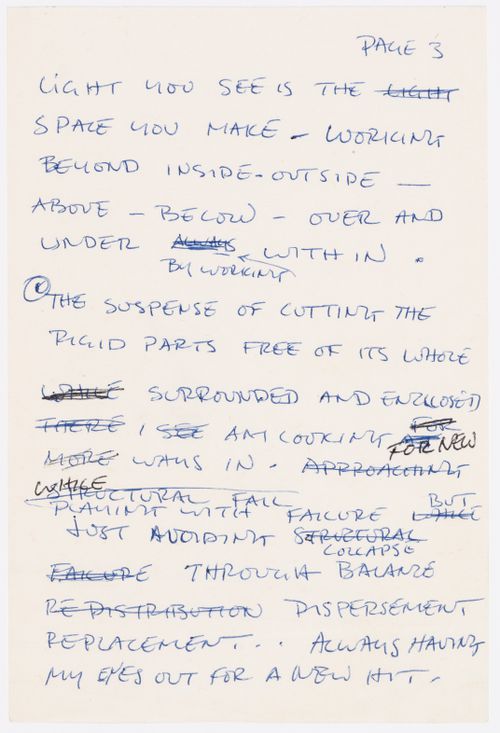 PAGE 3
LIGHT YOU SEE IS THE LIGHT
SPACE YOU MAKE – WORKING
BEYOND INSIDE-OUTSIDE —
ABOVE – BELOW – OVER AND
UNDER ALWAYS WITH IN .
BY WORKING
THE SUSPENSE OF CUTTING THE
RIGID PARTS FREE OF ITS WHOLE
WHILE SURROUNDED AND ENCLOSED
THERE I SEE AM LOOKING FOR
FOR NEW
MORE WAYS IN . APPROACHING
WHILE
STRUCTURAL FAIL
PLAYING WITH FAILURE WHILE BUT
JUST AVOIDING STRUCTURAL
COLLAPSE
FAILURE THROUGH BALANCE
RE-DISTRIBUTION DISPERSEMENT
REPLACEMENT . . ALWAYS HAVING
MY EYES OUT FOR A NEW HIT .